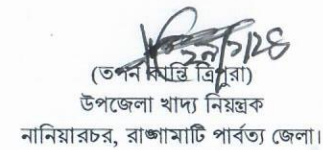 (তপন কান্তি ত্রিপুরা)
উপজেলা খাদ্য নিয়ন্ত্রক
নানিয়ারচর, রাঙ্গামাটি পার্বত্য জেলা।